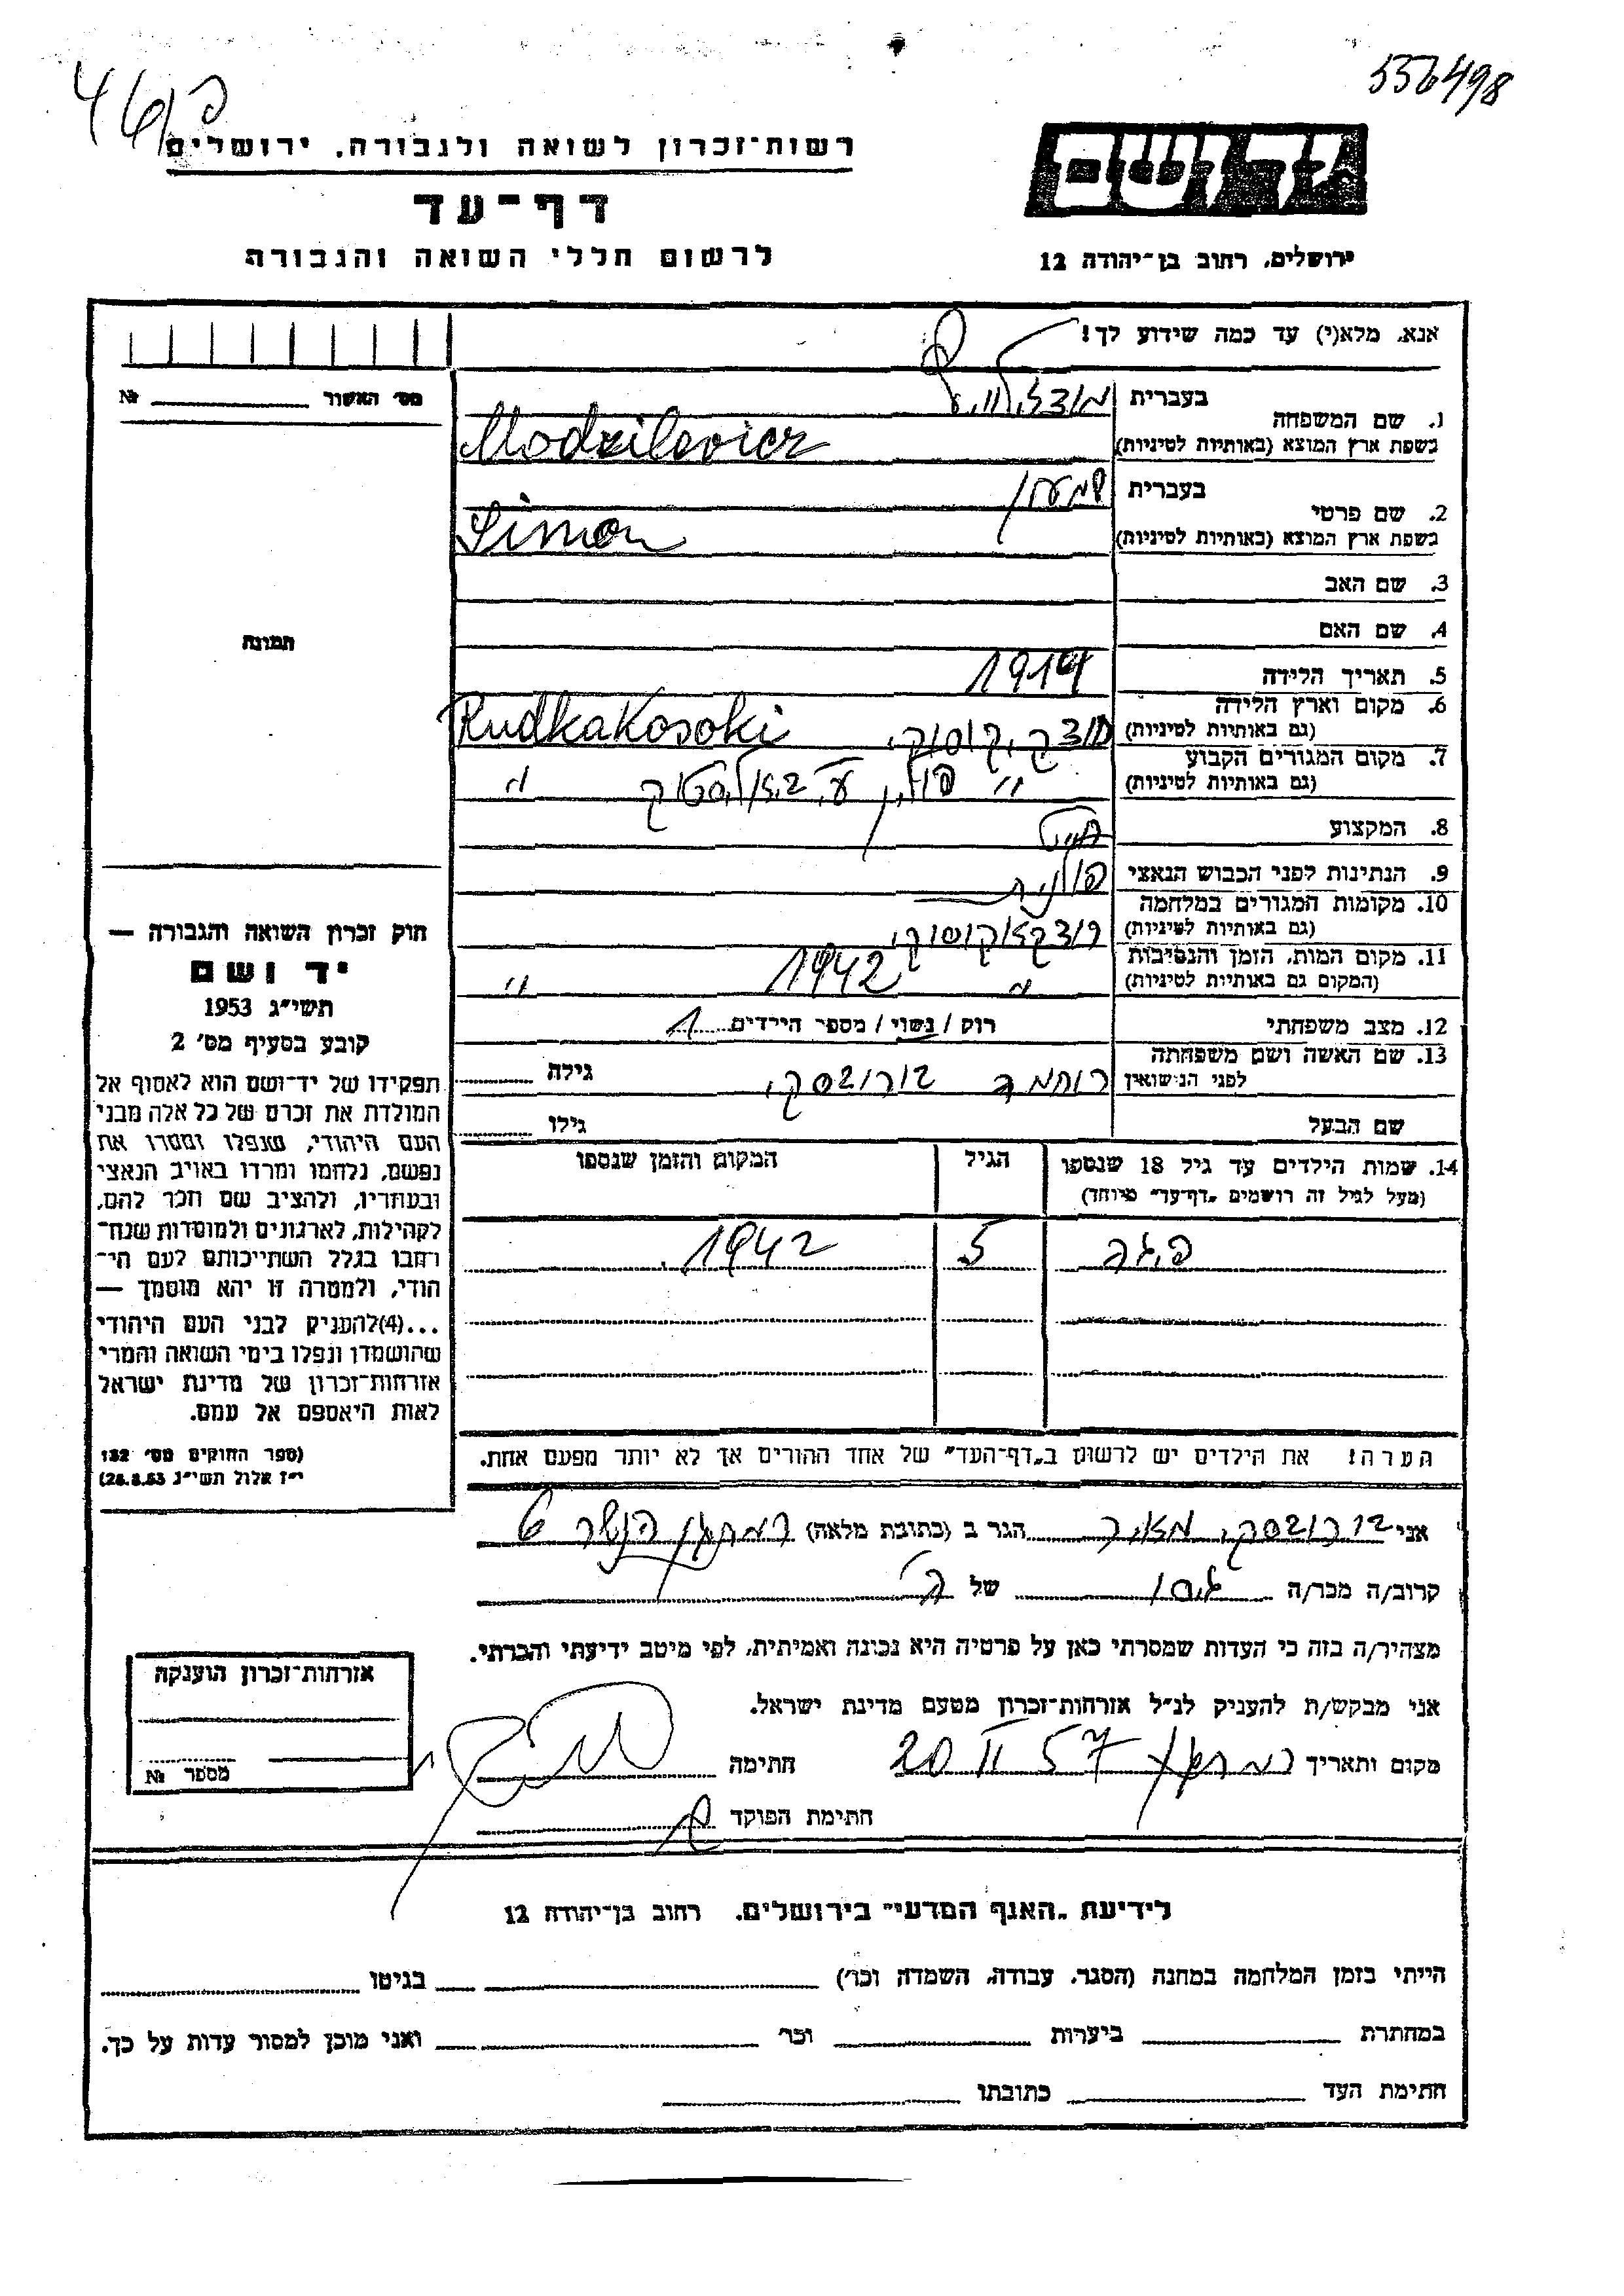 556498
רשות־זכרון לשואה ולגבורה, ירושלים
דף־עד
לרשום חללי השואה והגבורה
ירושלים, רחוב בן־יהודה 12
אנא, מלא(י) עד כמה שידוע לך!
מס׳ האשור № 
1. שם המשפחה בעברית
בשפת ארץ המוצא (באותיות לטיניות) Modzilevicz
2. שם פרטי בעברית שמעון
בשפת ארץ המוצא (באותיות לטיניות) Simon
3. שם האב
4. שם האם
תמונה
5. תאריך הלידה 1914
6. מקום וארץ הלידה
(גם באותיות לטיניות) Rudka Kosoki
7. מקום המגורים הקבוע
(גם באותיות לטיניות) " פולין ע"י ביאליסטוק "
8. המקצוע
9. הנתינות לפני הכבוש הנאצי פולנית
10. מקומות המגורים במלחמה
(גם באותיות לטיניות)
11. מקום המות, הזמן והנסיבות
(המקום גם באותיות לטיניות) " 1942 "
12. מצב משפחתי רוק / נשוי / מספר הילדים 1
13. שם האשה ושם משפחתה
לפני הנישואין גילה
שם הבעל גילו
14. שמות הילדים עד גיל 18 שנספו הגיל המקום והזמן שנספו
(מעל לגיל זה רושמים „דף־עד" מיוחד)
5 1942
הערה: את הילדים יש לרשום ב„דף־העד" של אחד ההורים אך לא יותר מפעם אחת.
חוק זכרון השואה והגבורה —
יד ושם
תשי״ג 1953
קובע בסעיף מס׳ 2
תפקידו של יד־ושם הוא לאסוף אל
המולדת את זכרם של כל אלה מבני
העם היהודי, שנפלו ומסרו את
נפשם, נלחמו ומרדו באויב הנאצי
ובעוזריו, ולהציב שם וזכר להם,
לקהילות, לארגונים ולמוסדות שנח־
רבו בגלל השתייכותם לעם הי־
הודי, ולמטרה זו יהא מוסמך —
...(4)להעניק לבני העם היהודי
שהושמדו ונפלו בימי השואה והמרי
אזרחות־זכרון של מדינת ישראל
לאות היאספם אל עמם.
(ספר החוקים מס׳ 132
י״ז אלול תשי״ג 28.8.53)
אני מאיר הגר ב (כתובת מלאה) רמת גן הנשר 6
קרוב/ה מכר/ה גיסו של ה
מצהיר/ה בזה כי העדות שמסרתי כאן על פרטיה היא נכונה ואמיתית, לפי מיטב ידיעתי והכרתי.
אני מבקש/ת להעניק לנ״ל אזרחות־זכרון מטעם מדינת ישראל.
מקום ותאריך רמת גן 20 II 57 חתימה
חתימת הפוקד
אזרחות־זכרון הוענקה
מספר №
לידיעת „האגף המדעי" בירושלים, רחוב בן־יהודה 12
הייתי בזמן המלחמה במחנה (הסגר, עבודה, השמדה וכו׳) בגיטו
במחתרת ביערות וכו׳ ואני מוכן למסור עדות על כך.
חתימת העד כתובתו